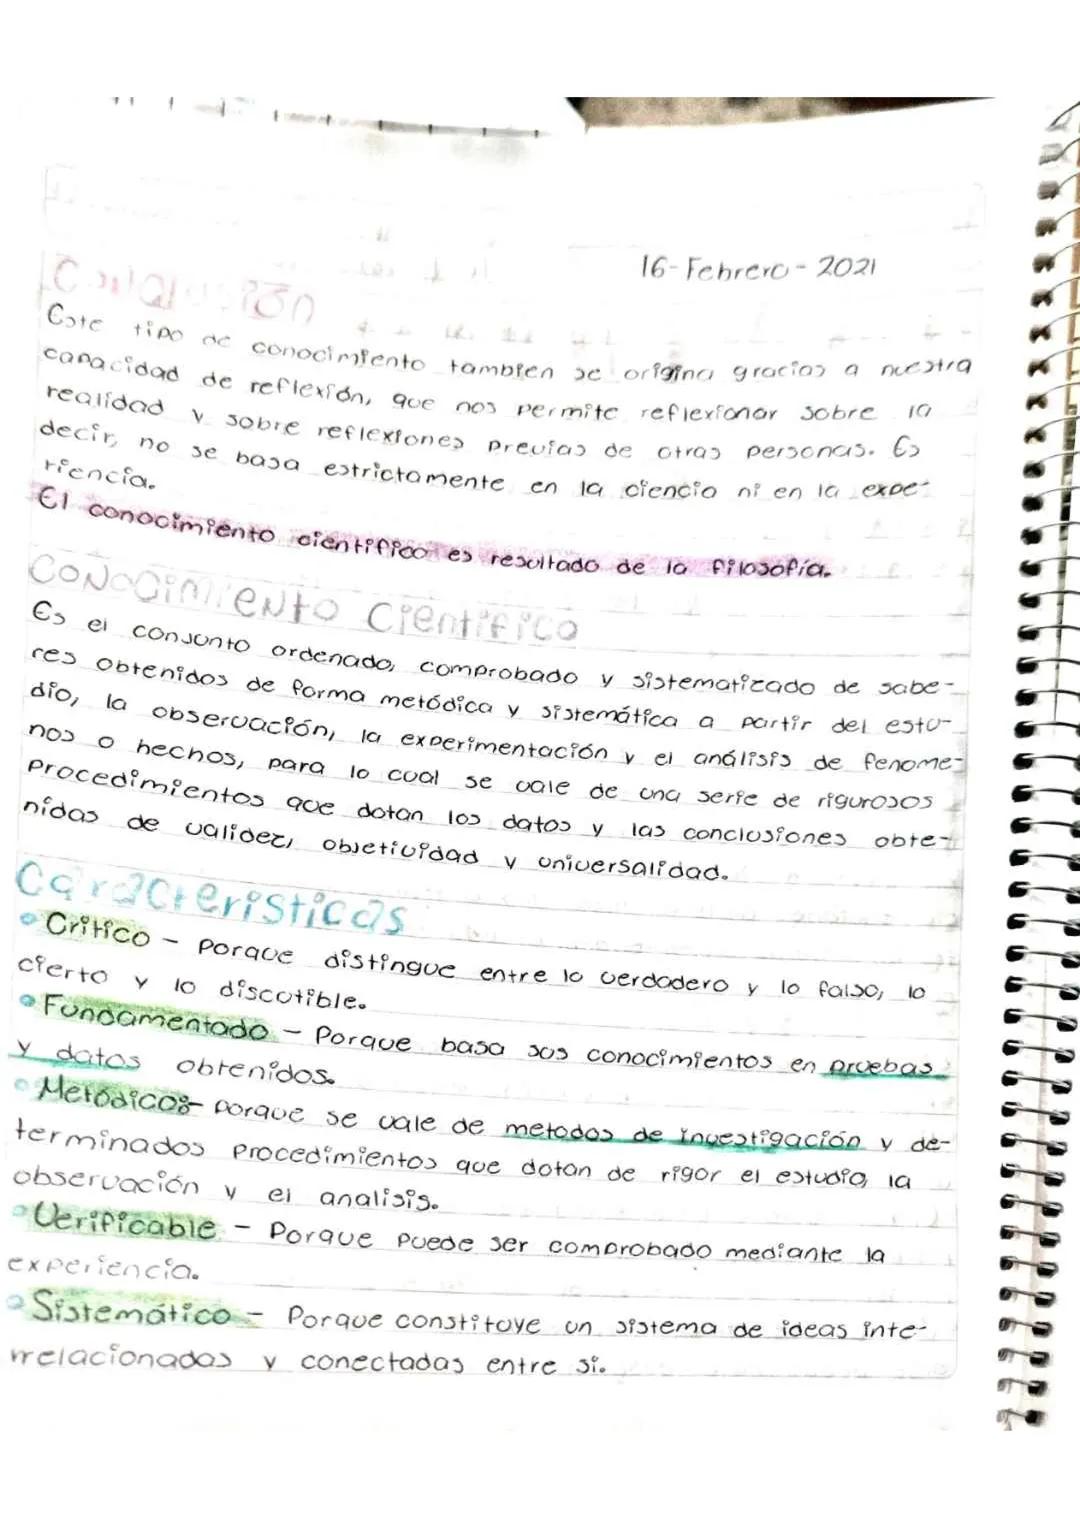 16-Febrero-2021
Conclusión
Este tipo de conocimiento tambien se origina gracias a nuestra
capacidad de reflexión, que nos permite reflexionar sobre la
realidad y sobre reflexiones previas de otras personas. Es
decir, no se basa estrictamente en la ciencia ni en la expe-
riencia.
El conocimiento cientifico es resultado de la filosofía.
Conocimiento Cientifico
Es el conjunto ordenado, comprobado y sistematizado de sabe-
res obtenidos de forma metódica y sistemática a partir del estu-
dio, la observación, la experimentación y el análisis de fenome-
nos o hechos, para lo cual se vale de una serie de rigurosos
procedimientos que dotan los datos y las conclusiones obte-
nidas de validez, objetividad y universalidad.
Caracteristicas
• Critico - porque distingue entre lo verdadero y lo falso, lo
cierto y lo discutible.
• Fundamentado - Porque basa sus conocimientos en pruebas
y datos obtenidos.
• Metódico:- porque se vale de metodos de investigación y de-
terminados procedimientos que dotan de rigor el estudio, la
observación y el analisis.
• Verificable - Porque puede ser comprobado mediante la
experiencia.
• Sistemático - Porque constituye un sistema de ideas inte-
rrelacionadas y conectadas entre sí.